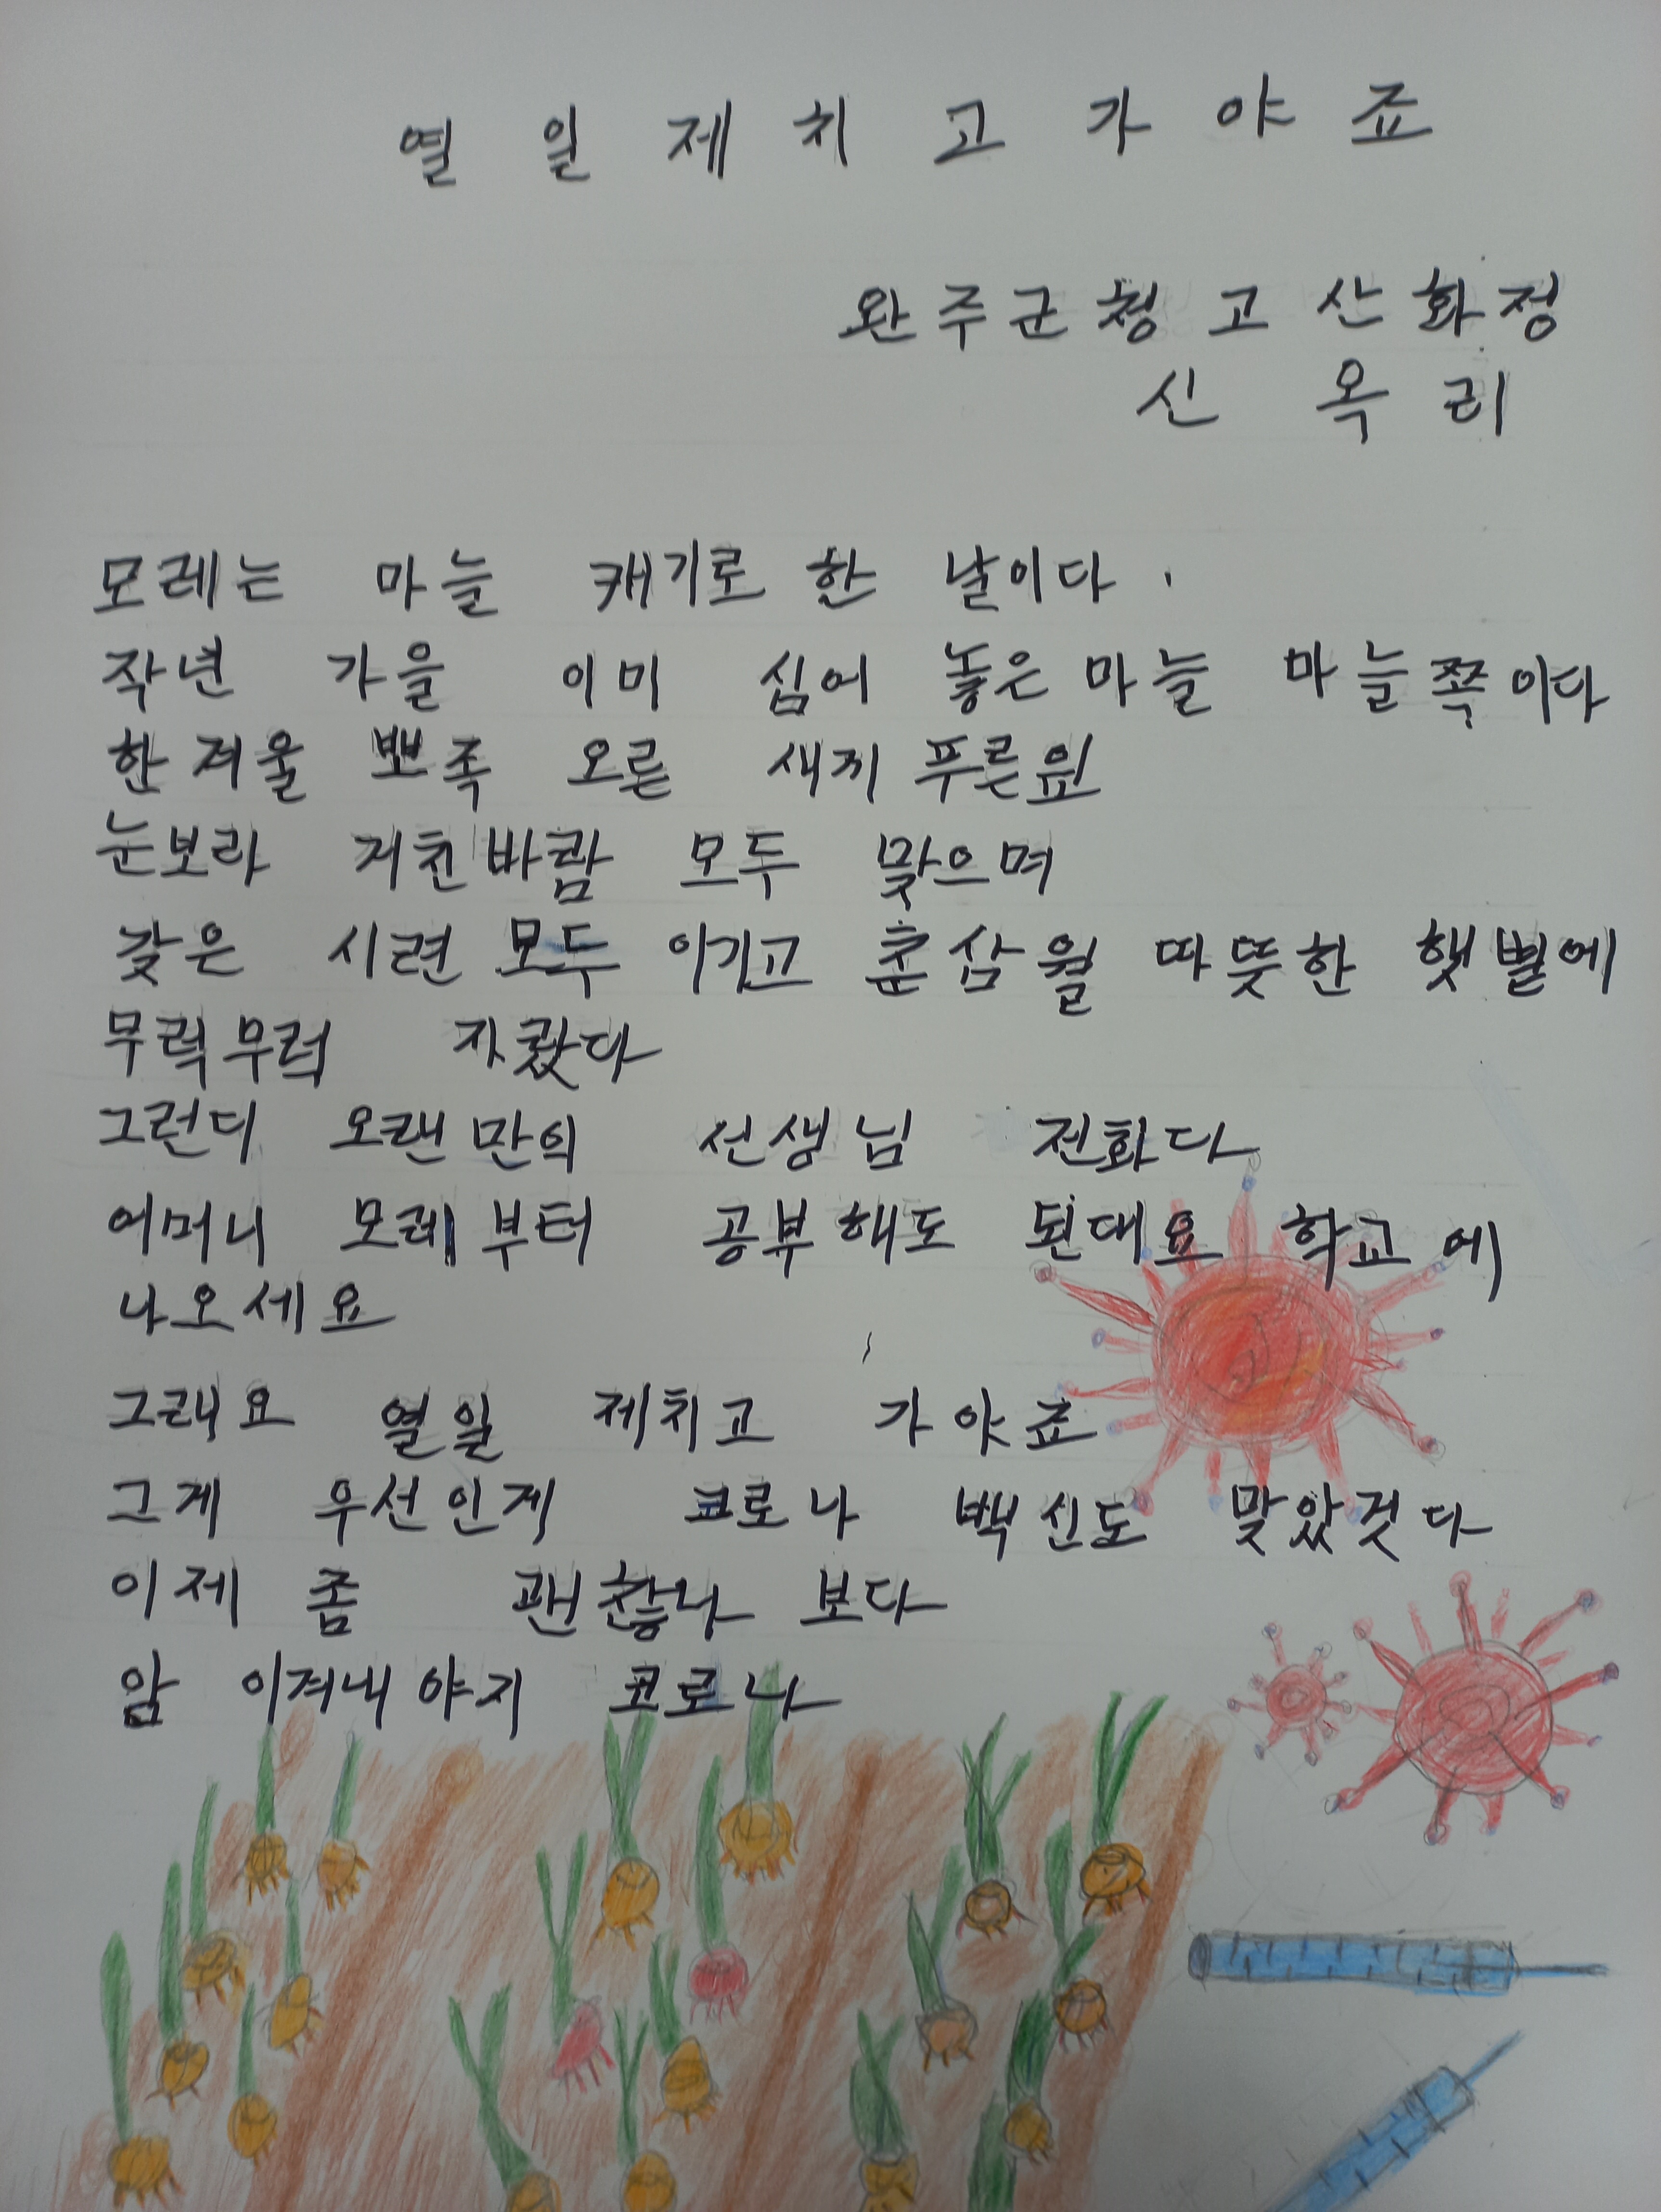 열 일 제 치 고 가 야 죠
완주군청 고산화정
신 옥 리
모레는 마늘 캐기로 한 날이다.
작년 가을 이미 심어 놓은 마늘 마늘쪽이다
한겨울 뽀족 오른 새끼 푸른잎
눈보라 거친바람 모두 맞으며
갖은 시련 모두 이기고 춘삼월 따뜻한 햇볕에
무럭무럭 자랐다
그런디 오랜만의 선생님 전화다
어머니 모레부터 공부해도 된대요 학교에
나오세요
그래요 열일 제치고 가야죠
그게 우선인게 코로나 백신도 맞았것다
이제 좀 괜찮나 보다
암 이겨내야지 코로나